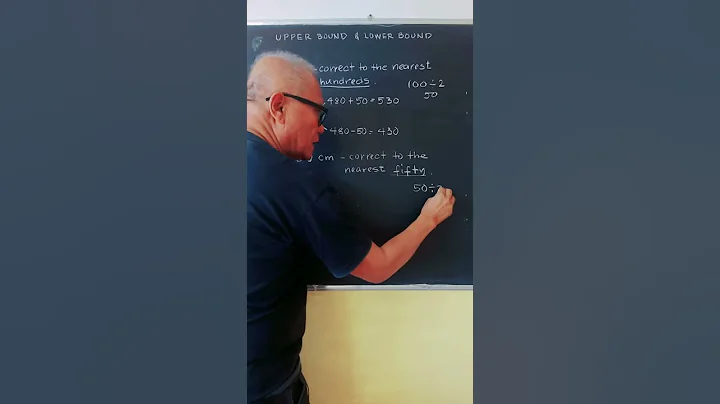 UPPER BOUND & LOWER BOUND
- correct to the nearest
hundreds.
100÷2
50
480+50=530
480-50=430
cm - correct to the
nearest fifty.
50÷2